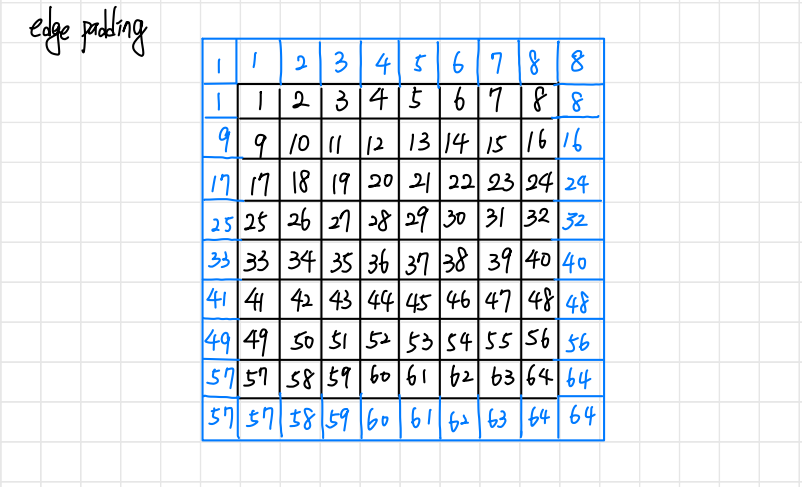 edge padding
1 1 2 3 4 5 6 7 8 8
1 1 2 3 4 5 6 7 8 8
9 9 10 11 12 13 14 15 16 16
17 17 18 19 20 21 22 23 24 24
25 25 26 27 28 29 30 31 32 32
33 33 34 35 36 37 38 39 40 40
41 41 42 43 44 45 46 47 48 48
49 49 50 51 52 53 54 55 56 56
57 57 58 59 60 61 62 63 64 64
57 57 58 59 60 61 62 63 64 64